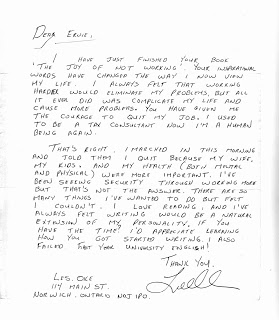 Dear Ernie,
I have just finished your book
'The Joy of Not Working'. Your inspirational
words have changed the way I now view
my life. I always felt that working
harder would eliminate my problems, but all
it ever did was complicate my life and
cause more problems. You have given me
the courage to quit my job. I used
to be a tax consultant now I'm a human
being again.
That's right, I marched in this morning
and told them I quit because my wife,
my kids, and my health (both mental
and physical) were more important. I've
been seeking security through working more
but that's not the answer. There are so
many things I've wanted to do but felt
I couldn't. I love reading, and I've
always felt writing would be a natural
extension of my personality, if you
have the time. I'd appreciate learning
how you got started writing. I also
failed first year university English!
Thank you,
Les. Oke
114 Main St.
Norwich, Ontario N0J 1P0.